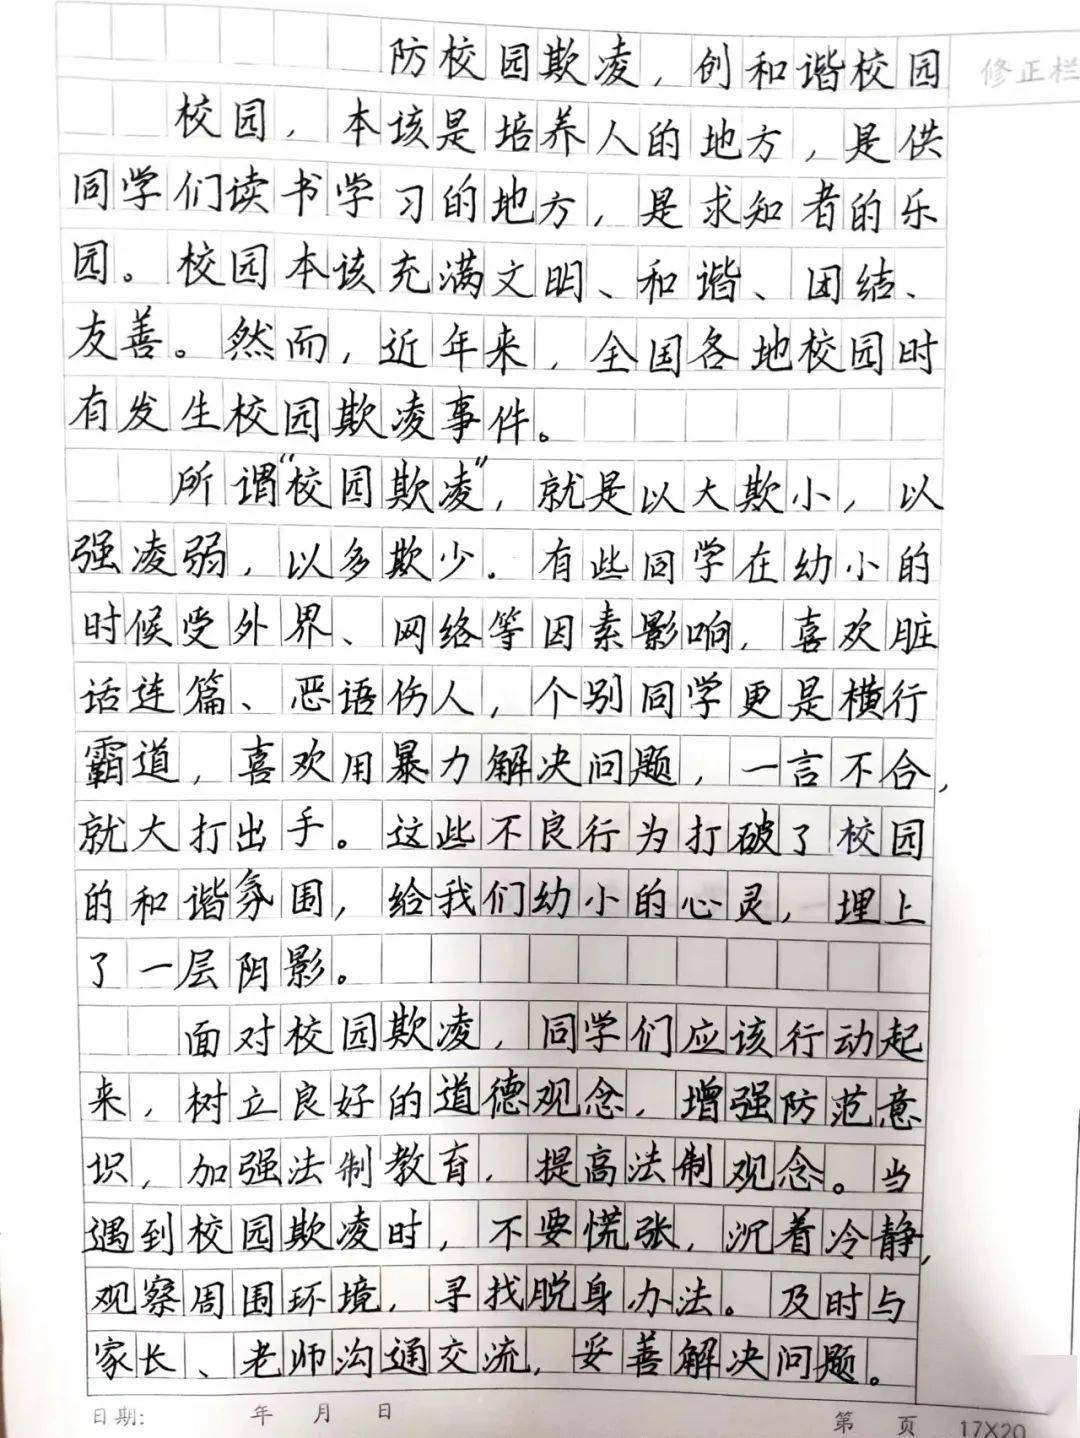 防校园欺凌，创和谐校园
修正栏
校园，本该是培养人的地方，是供
同学们读书学习的地方，是求知者的乐
园。校园本该充满文明、和谐、团结、
友善。然而，近年来，全国各地校园时
有发生校园欺凌事件。
所谓“校园欺凌”，就是以大欺小，以
强凌弱，以多欺少．有些同学在幼小的
时候受外界、网络等因素影响，喜欢脏
话连篇、恶语伤人，个别同学更是横行
霸道，喜欢用暴力解决问题，一言不合，
就大打出手。这些不良行为打破了校园
的和谐氛围，给我们幼小的心灵，埋上
了一层阴影。
面对校园欺凌，同学们应该行动起
来，树立良好的道德观念，增强防范意
识，加强法制教育，提高法制观念。当
遇到校园欺凌时，不要慌张，沉着冷静，
观察周围环境，寻找脱身办法。及时与
家长、老师沟通交流，妥善解决问题。
日期： 年 月 日
第 页 17X20